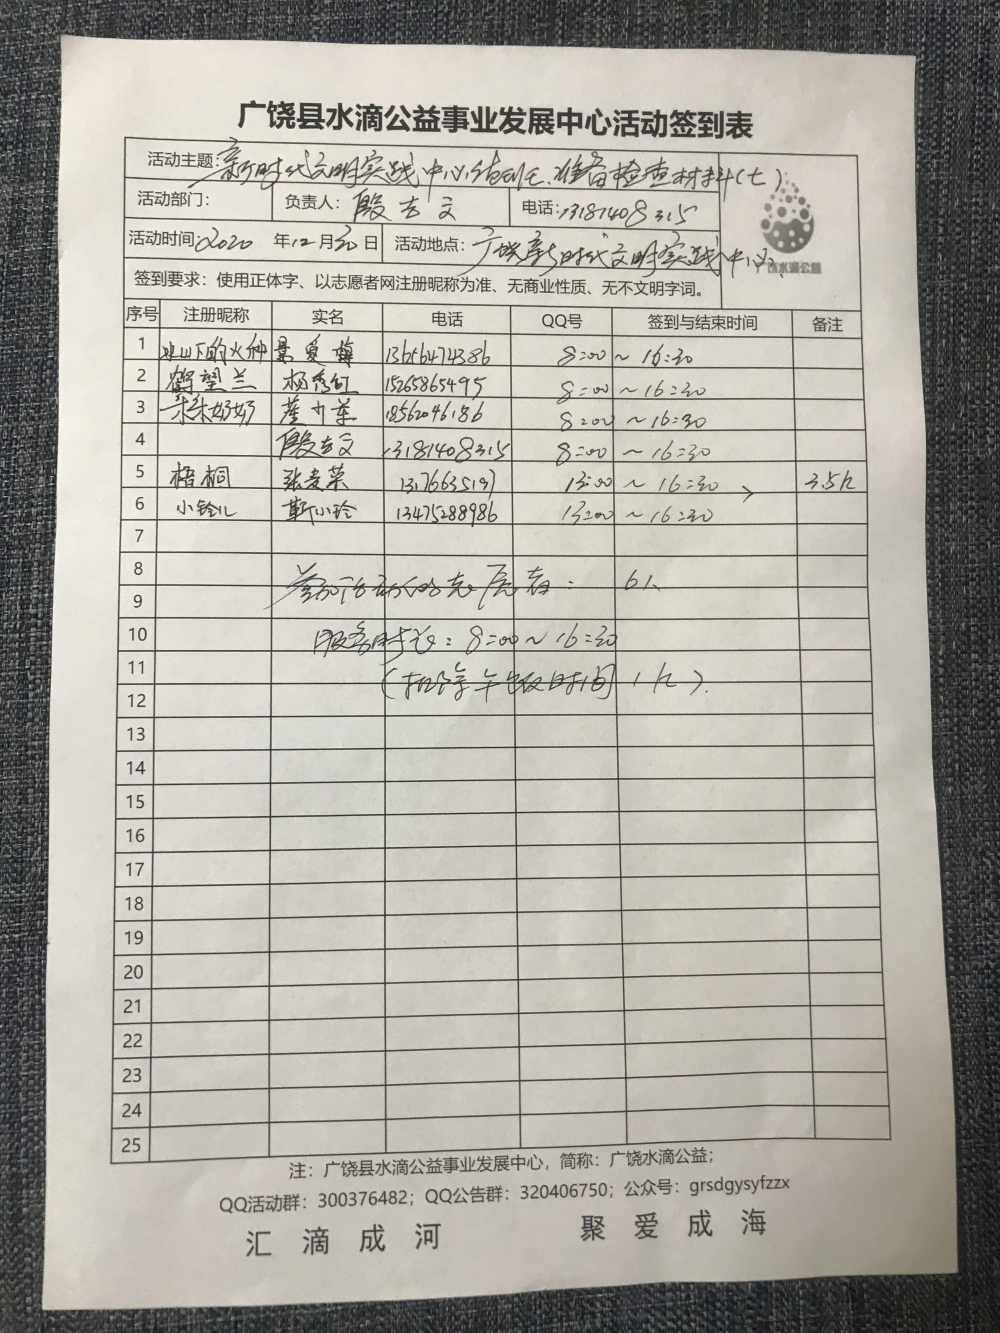 广饶县水滴公益事业发展中心活动签到表
活动主题：新时代文明实践中心结对、准备检查材料(七)
活动部门： 负责人：殷吉文 电话：13181408315
活动时间：2020年12月30日 活动地点：广饶新时代文明实践中心
广饶水滴公益
签到要求：使用正体字、以志愿者网注册昵称为准、无商业性质、无不文明字词。
序号 注册昵称 实名 电话 QQ号 签到与结束时间 备注
1 冰山下的火种 景爱梅 13656474386 8:00～16:30
2 鹤望兰 杨秀红 15265865495 8:00～16:30
3 朵朵奶奶 18562046186 8:00～16:30
4 殷吉文 13181408315 8:00～16:30
5 梧桐 张爱荣 13:00～16:30 3.5h
6 小铃儿 靳小玲 13475288986 13:00～16:30
7
8 参加活动的志愿者： 6人
9
10 服务时长：8:00～16:30
11 (扣除午饭时间1h).
12
13
14
15
16
17
18
19
20
21
22
23
24
25
注：广饶县水滴公益事业发展中心，简称：广饶水滴公益；
QQ活动群：300376482；QQ公告群：320406750；公众号：grsdgysyfzzx
汇滴成河 聚爱成海